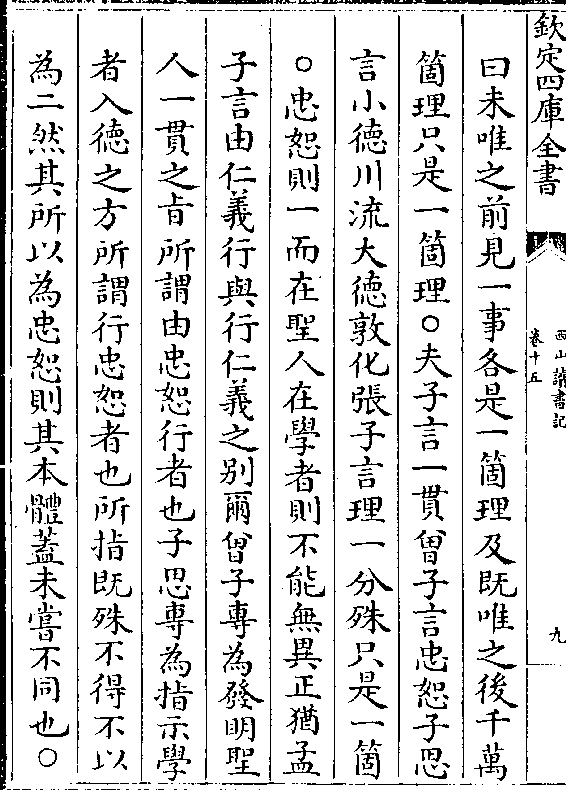 欽定四庫全書
西山讀書記
卷十五
九
曰未唯之前見一事各是一箇理及既唯之後千萬
箇理只是一箇理○夫子言一貫曾子言忠恕子思
言小德川流大德敦化張子言理一分殊只是一箇
○忠恕則一而在聖人在學者則不能無異正猶孟
子言由仁義行與行仁義之别爾曾子專為發明聖
人一貫之㫖所謂由忠恕行者也子思專為指示學
者入德之方所謂行忠恕者也所指既殊不得不以
為二然其所以為忠恕則其本體蓋未嘗不同也○